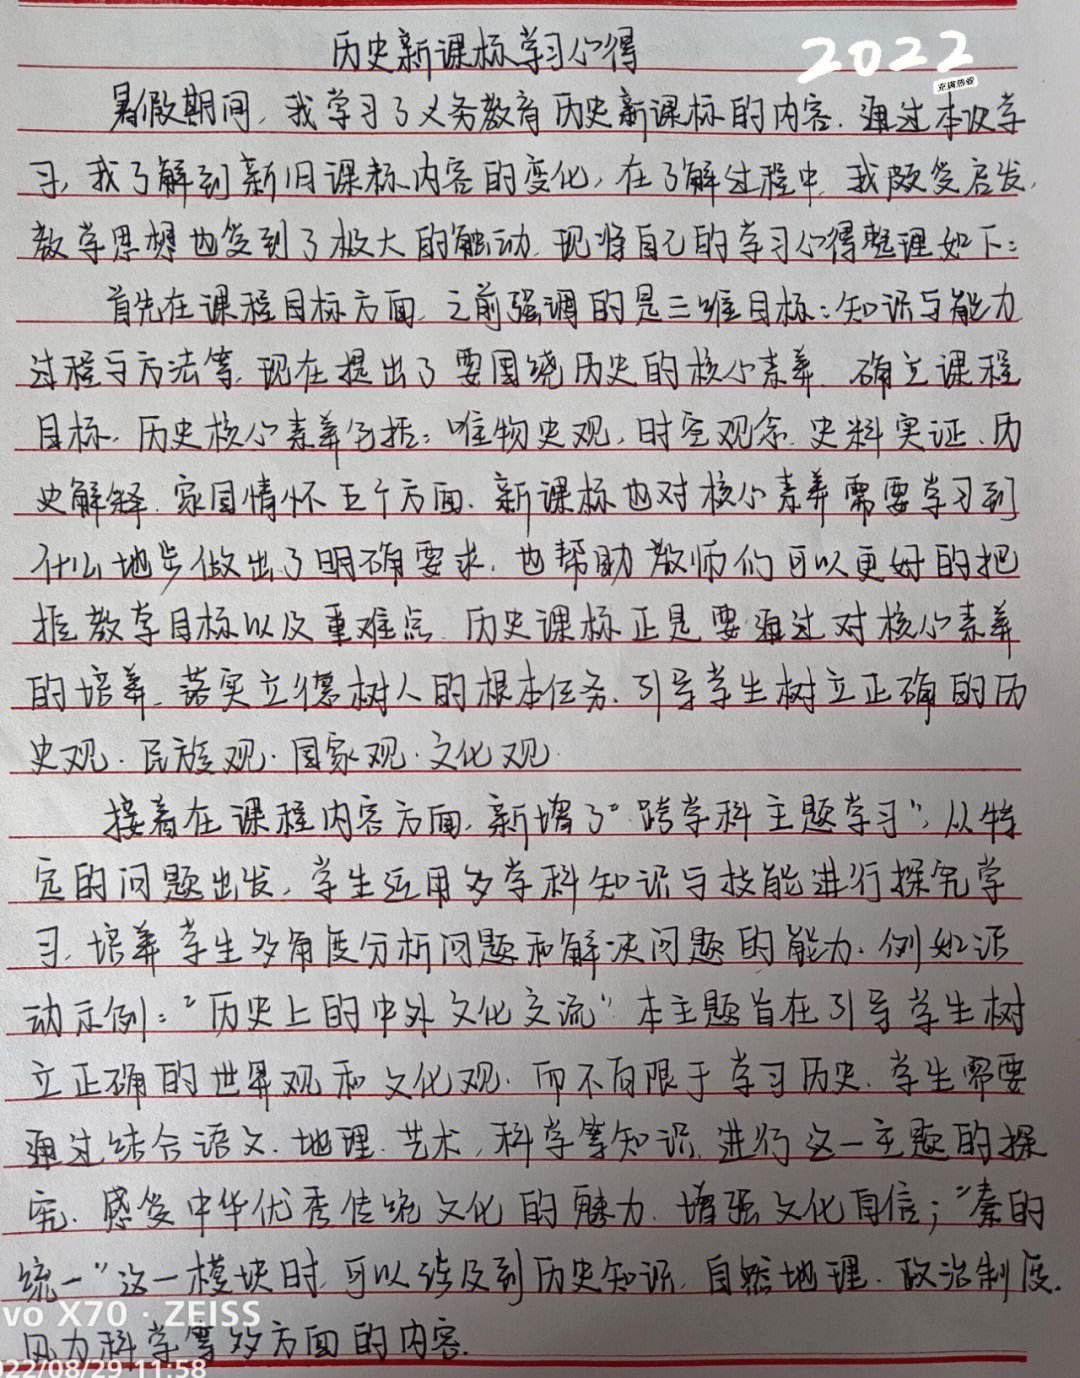 历史新课标学习心得
2022
充满热爱
暑假期间，我学习了义务教育历史新课标的内容.通过本次学
习，我了解到新旧课标内容的变化，在了解过程中，我颇受启发，
教学思想也受到了极大的触动.现将自己的学习心得整理如下：
首先在课程目标方面，之前强调的是三维目标：知识与能力
过程与方法等，现在提出了要围绕历史的核心素养，确立课程
目标.历史核心素养包括：唯物史观，时空观念，史料实证、历
史解释、家国情怀五个方面.新课标也对核心素养需要学习到
什么地步做出了明确要求，也帮助教师们可以更好的把
握教学目标以及重难点.历史课标正是要通过对核心素养
的培养，落实立德树人的根本任务.引导学生树立正确的历
史观.民族观.国家观.文化观.
接着在课程内容方面，新增了“跨学科主题学习”，从特
定的问题出发，学生运用多学科知识与技能进行探究学
习，培养学生多角度分析问题和解决问题的能力.例如活
动示例：“历史上的中外文化交流”本主题旨在引导学生树
立正确的世界观和文化观.而不局限于学习历史.学生需要
通过结合语文.地理.艺术，科学等知识，进行这一主题的探
究.感受中华优秀传统文化的魅力.增强文化自信；“秦的
统一”这一模块时，可以涉及到历史知识，自然地理.政治制度.
vo X70 · ZEISS
风力科学等多方面的内容.
022/08/29 11:58